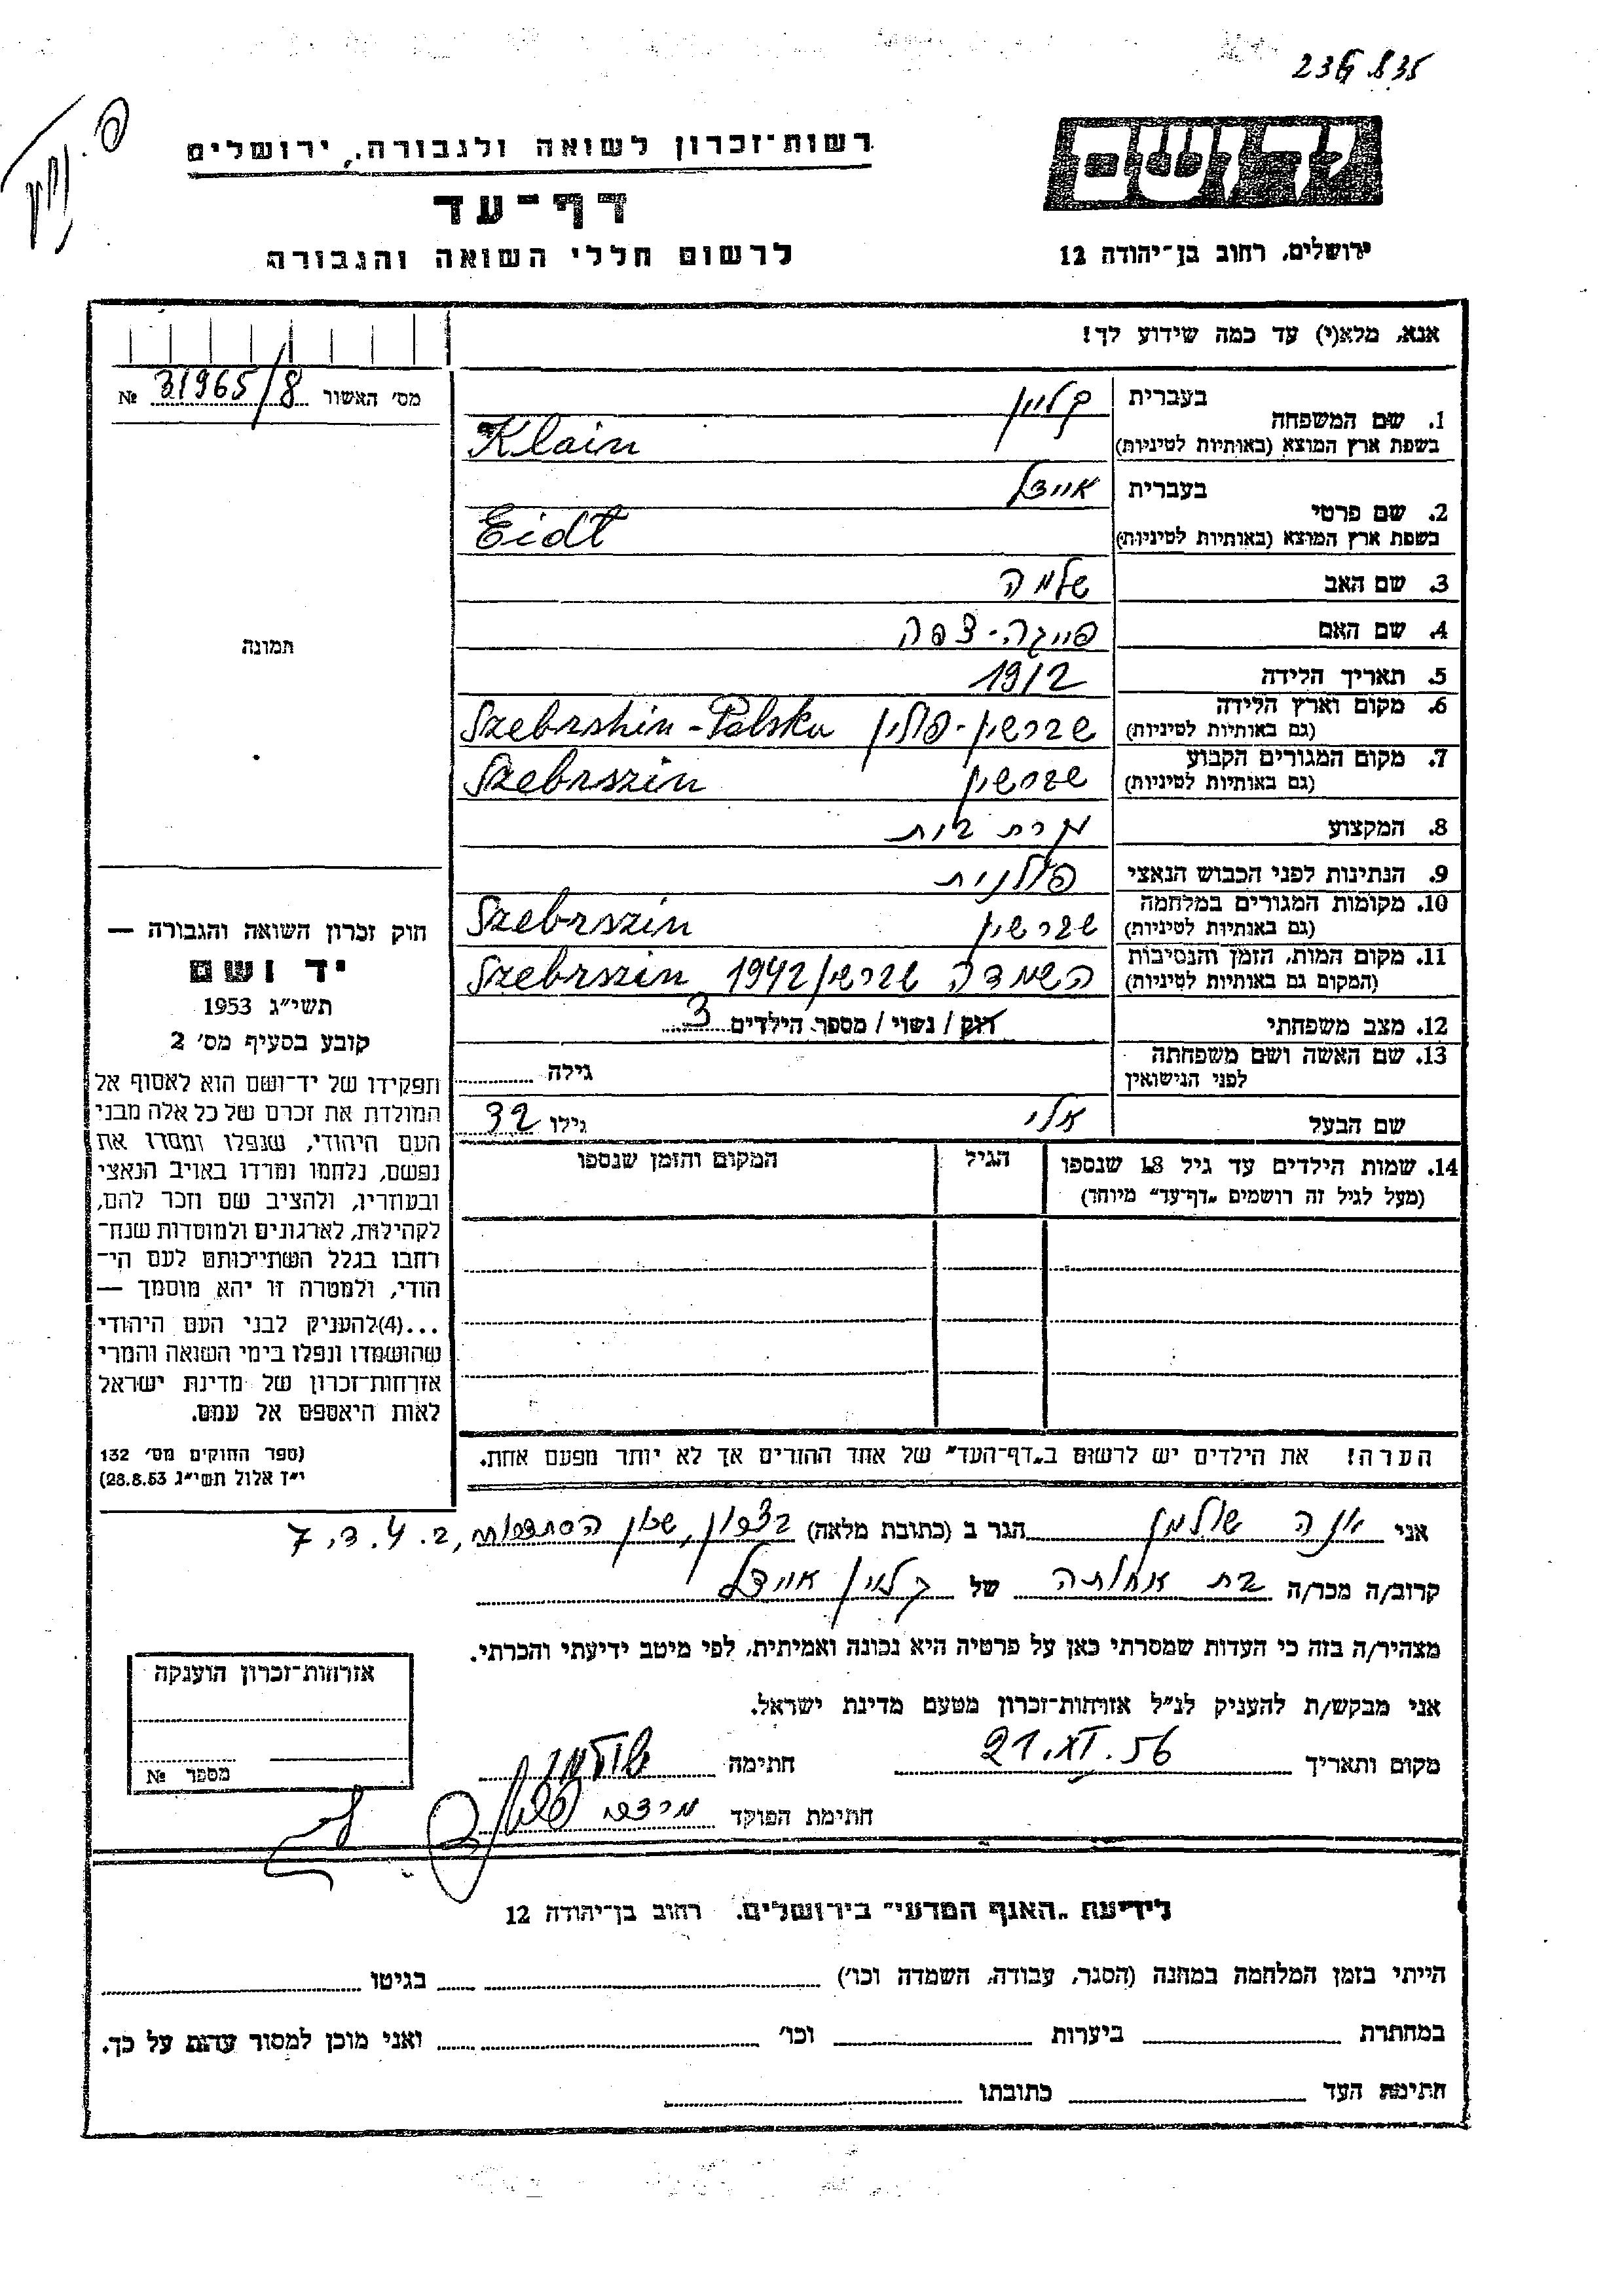 236 835
רשות־זכרון לשואה ולגבורה, ירושלים
דף־עד
לרשום חללי השואה והגבורה
ירושלים, רחוב בן־יהודה 12
אנא, מלא(י) עד כמה שידוע לך!
מס' האשור 31965/8 №
1. שם המשפחה
בעברית קליין
בשפת ארץ המוצא (באותיות לטיניות) Klain
2. שם פרטי
בעברית איידל
בשפת ארץ המוצא (באותיות לטיניות) Eidl
3. שם האב שלמה
4. שם האם פייגה-צפה
5. תאריך הלידה 1912
6. מקום וארץ הלידה (גם באותיות לטיניות) שברשין-פולין Szebrshin-Polska
7. מקום המגורים הקבוע (גם באותיות לטיניות) שברשין Szebrszin
8. המקצוע עקרת בית
9. הנתינות לפני הכבוש הנאצי פולנית
10. מקומות המגורים במלחמה (גם באותיות לטיניות) שברשין Szebrszin
11. מקום המות, הזמן והנסיבות (המקום גם באותיות לטיניות) השמדה שברשין 1942 Szebrszin
12. מצב משפחתי רוק / נשוי / מספר הילדים 3
13. שם האשה ושם משפחתה לפני הנישואין
גילה
שם הבעל אלי גילו 32
14. שמות הילדים עד גיל 18 שנספו
(מעל לגיל זה רושמים "דף־עד" מיוחד)
הגיל
המקום והזמן שנספו
הערה! את הילדים יש לרשום ב"דף־העד" של אחד ההורים אך לא יותר מפעם אחת.
תמונה
חוק זכרון השואה והגבורה —
יד ושם
תשי"ג 1953
קובע בסעיף מס' 2
ותפקידו של יד־ושם הוא לאסוף אל
המולדת את זכרם של כל אלה מבני
העם היהודי, שנפלו ומסרו את
נפשם, נלחמו ומרדו באויב הנאצי
ובעוזריו, ולהציב שם וזכר להם,
לקהילות, לארגונים ולמוסדות שנח־
רחבו בגלל השתייכותם לעם הי־
הודי, ולמטרה זו יהא מוסמך —
...(4)להעניק לבני העם היהודי
שהושמדו ונפלו בימי השואה והמרי
אזרחות־זכרון של מדינת ישראל
לאות היאספם אל עמם.
(ספר החוקים מס' 132
י"ד אלול תשי"ג 28.8.53)
אני אנה שולמן הגר ב (כתובת מלאה) שכון הסתדרות, ב. 4. ד. 7
קרוב/ה מכר/ה בת אחותה של קליין איידל
מצהיר/ה בזה כי העדות שמסרתי כאן על פרטיה היא נכונה ואמיתית, לפי מיטב ידיעתי והכרתי.
אני מבקש/ת להעניק לנ"ל אזרחות־זכרון מטעם מדינת ישראל.
מקום ותאריך 21.XI.56 חתימה שולמן
חתימת הפוקד מרדכי
אזרחות־זכרון הוענקה
מספר №
לידיעת "האגף המדעי" בירושלים. רחוב בן־יהודה 12
הייתי בזמן המלחמה במחנה (הסגר, עבודה, השמדה וכו') בגיטו
במחתרת ביערות וכו' ואני מוכן למסור עדות על כך.
חתימת העד כתובתו